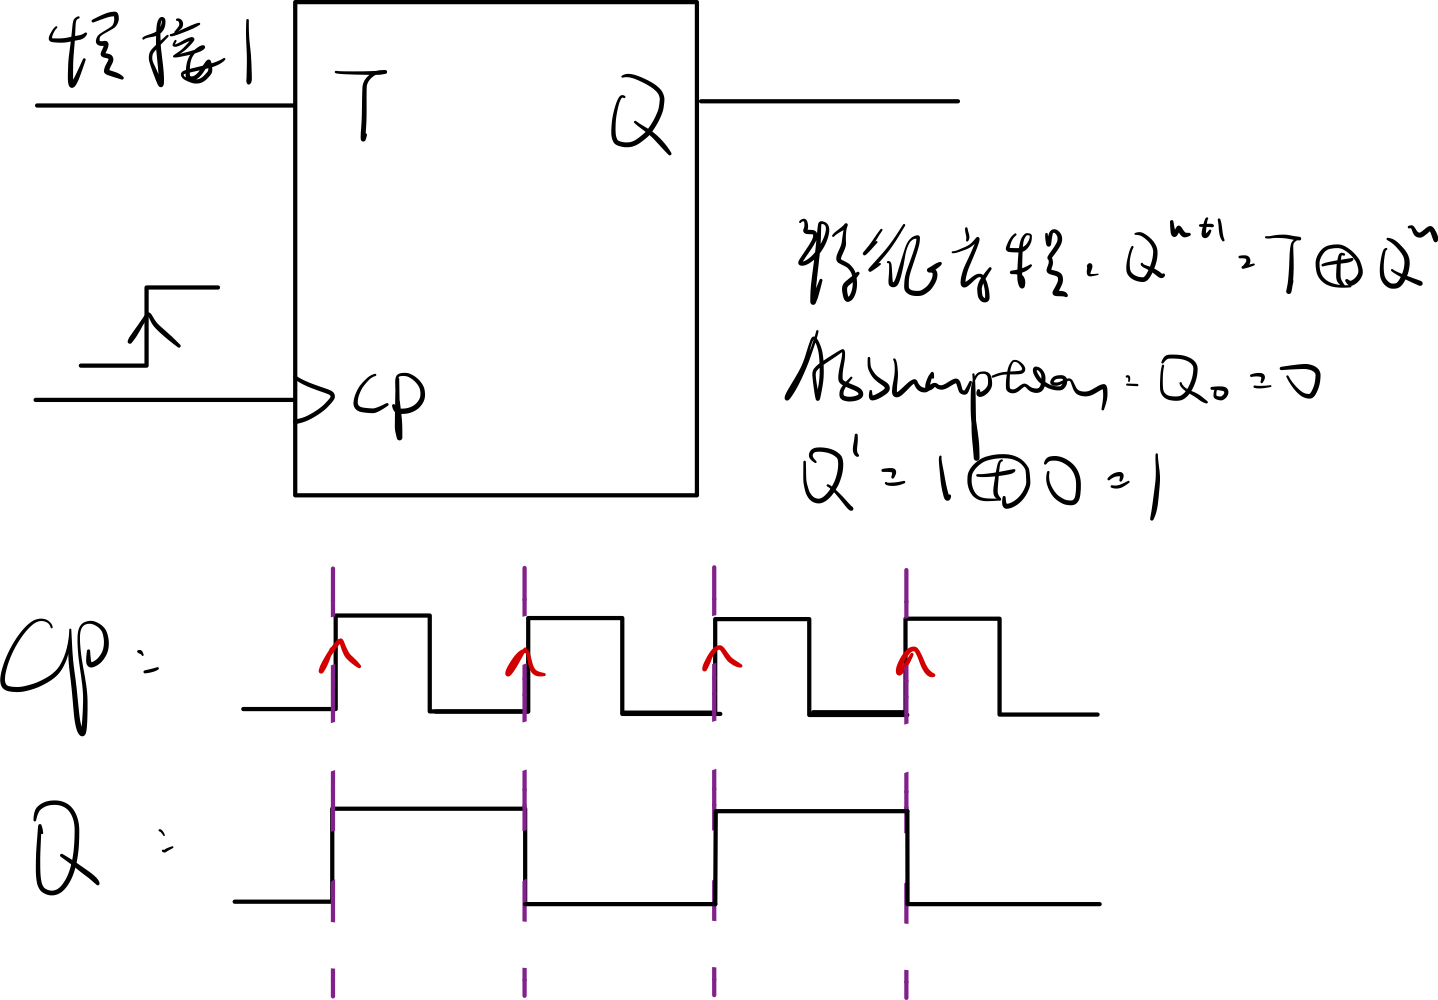 恒接1
T
Q
CP
特征方程: Qⁿ⁺¹=T⊕Qⁿ
Assumption: Q₀=0
Q¹=1⊕0=1
CP:
Q: